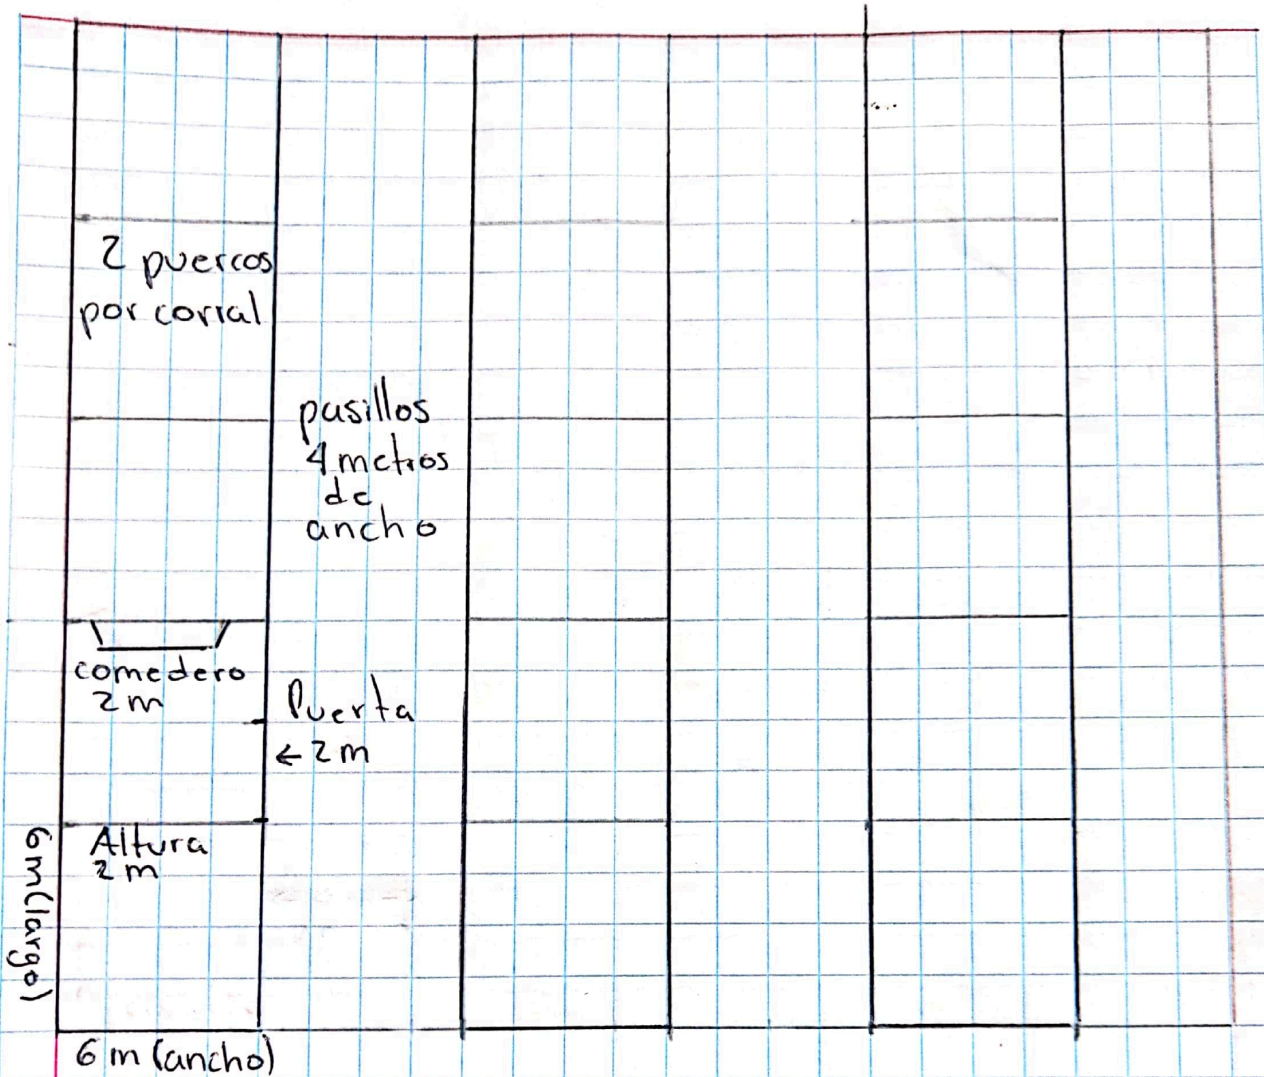 2 puercos
por corral
pasillos
4 metros
de
ancho
comedero
2 m
Puerta
← 2 m
Altura
2 m
6 m (largo)
6 m (ancho)